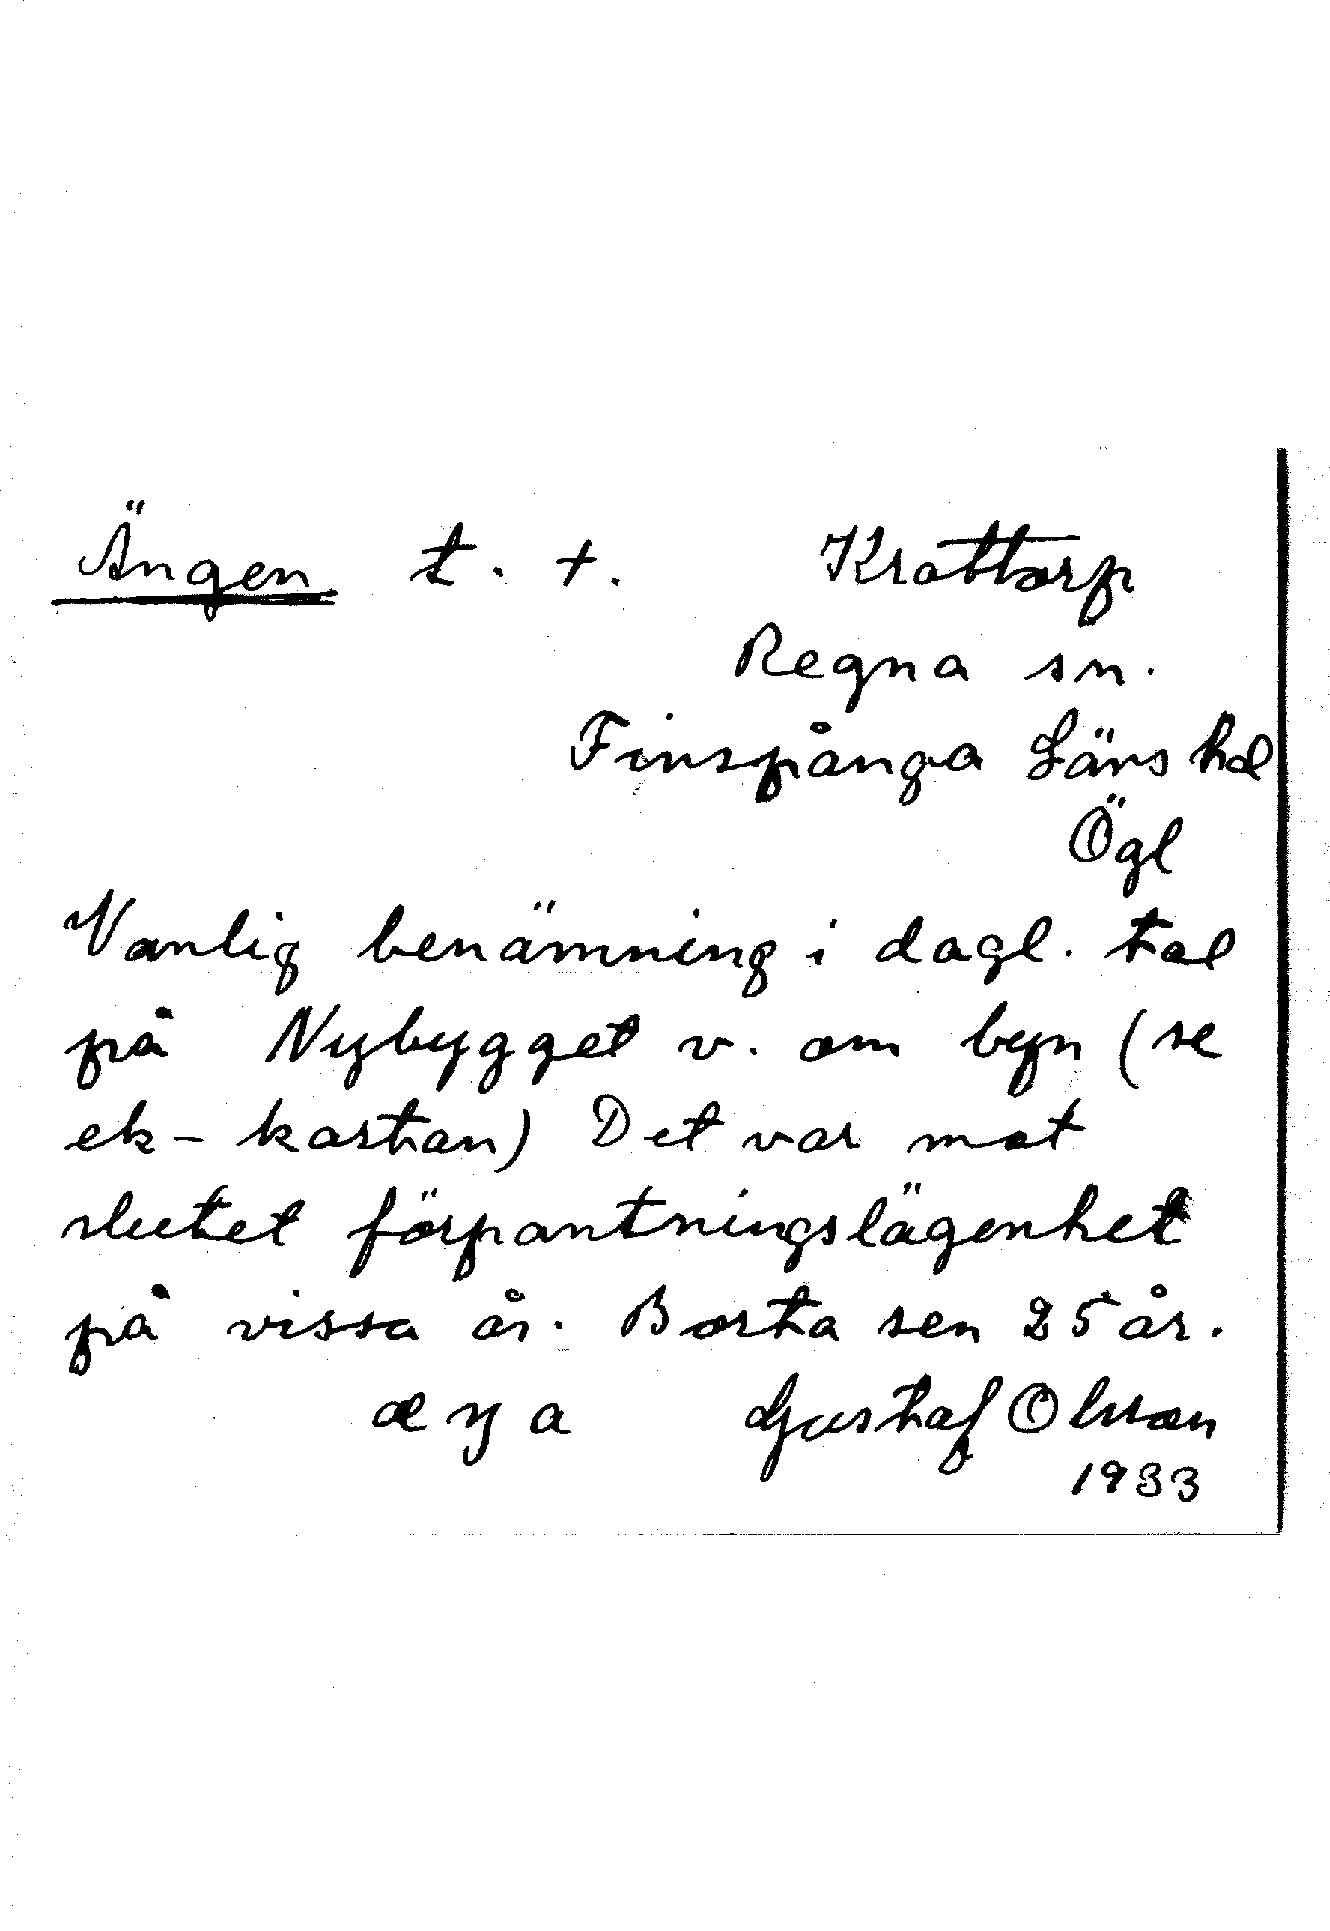 Ängen t. +. Krattorp
Regna sn.
Finspånga Läns hd
Ögl
Vanlig benämning i dagl. tal
på Nybygget v. om byn (se
ek-kartan) Det var mot
slutet förpantningslägenhet
på vissa år. Borta sen 25 år.
Gustaf Olsson
1933